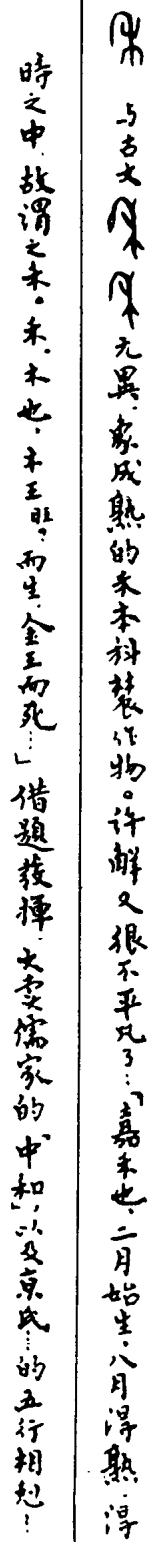 与古文无異，象成熟的禾本科農作物。许解又很不平凡了：「嘉禾也，二月始生，八月得熟，得
時之中，故谓之禾。禾，木也，木王而生，金王而死…」借題發揮，大賣儒家的“中和”，以及京氏…的五行相尅！